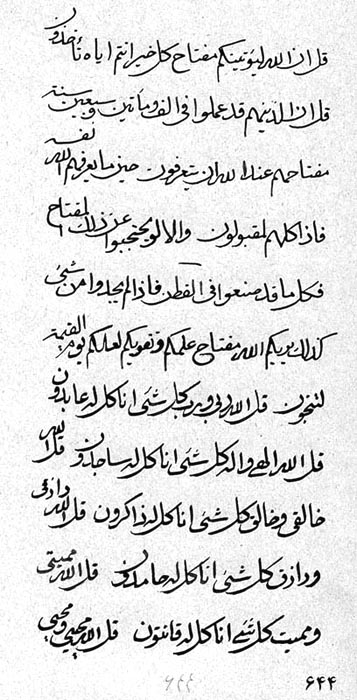 قل ان الله ليؤتينكم مفتاح كل خير انتم اياه تأخذون
قل ان الذينهم قد عملوا في الف ومأتين وسبعين سنة
مفتاحهم عند الله ان يتعرفون حيز ما يعرفهم الله نفسه
فاذا كلهم لمقبولون والا لو يحتجبوا عن ذلك المفتاح
فكل ما قد صنعوا في الفطن فاذا لم يجدوا من شئ
كذلك يريكم الله مفتاح علمكم وتقويكم لعلكم يوم القيمة
لتنجون قل الله ربي ورب كل شئ انا كل له عابدون
قل الله الهي واله كل شئ انا كل له ساجدون قل الله
خالقي وخالق كل شئ انا كل له ذاكرون قل الله رازقي
ورازق كل شئ انا كل له حامدون قل الله مميتي
ومميت كل شئ انا كل له قانتون قل الله محيي ومحيي
۶۴۴
۶۴۴